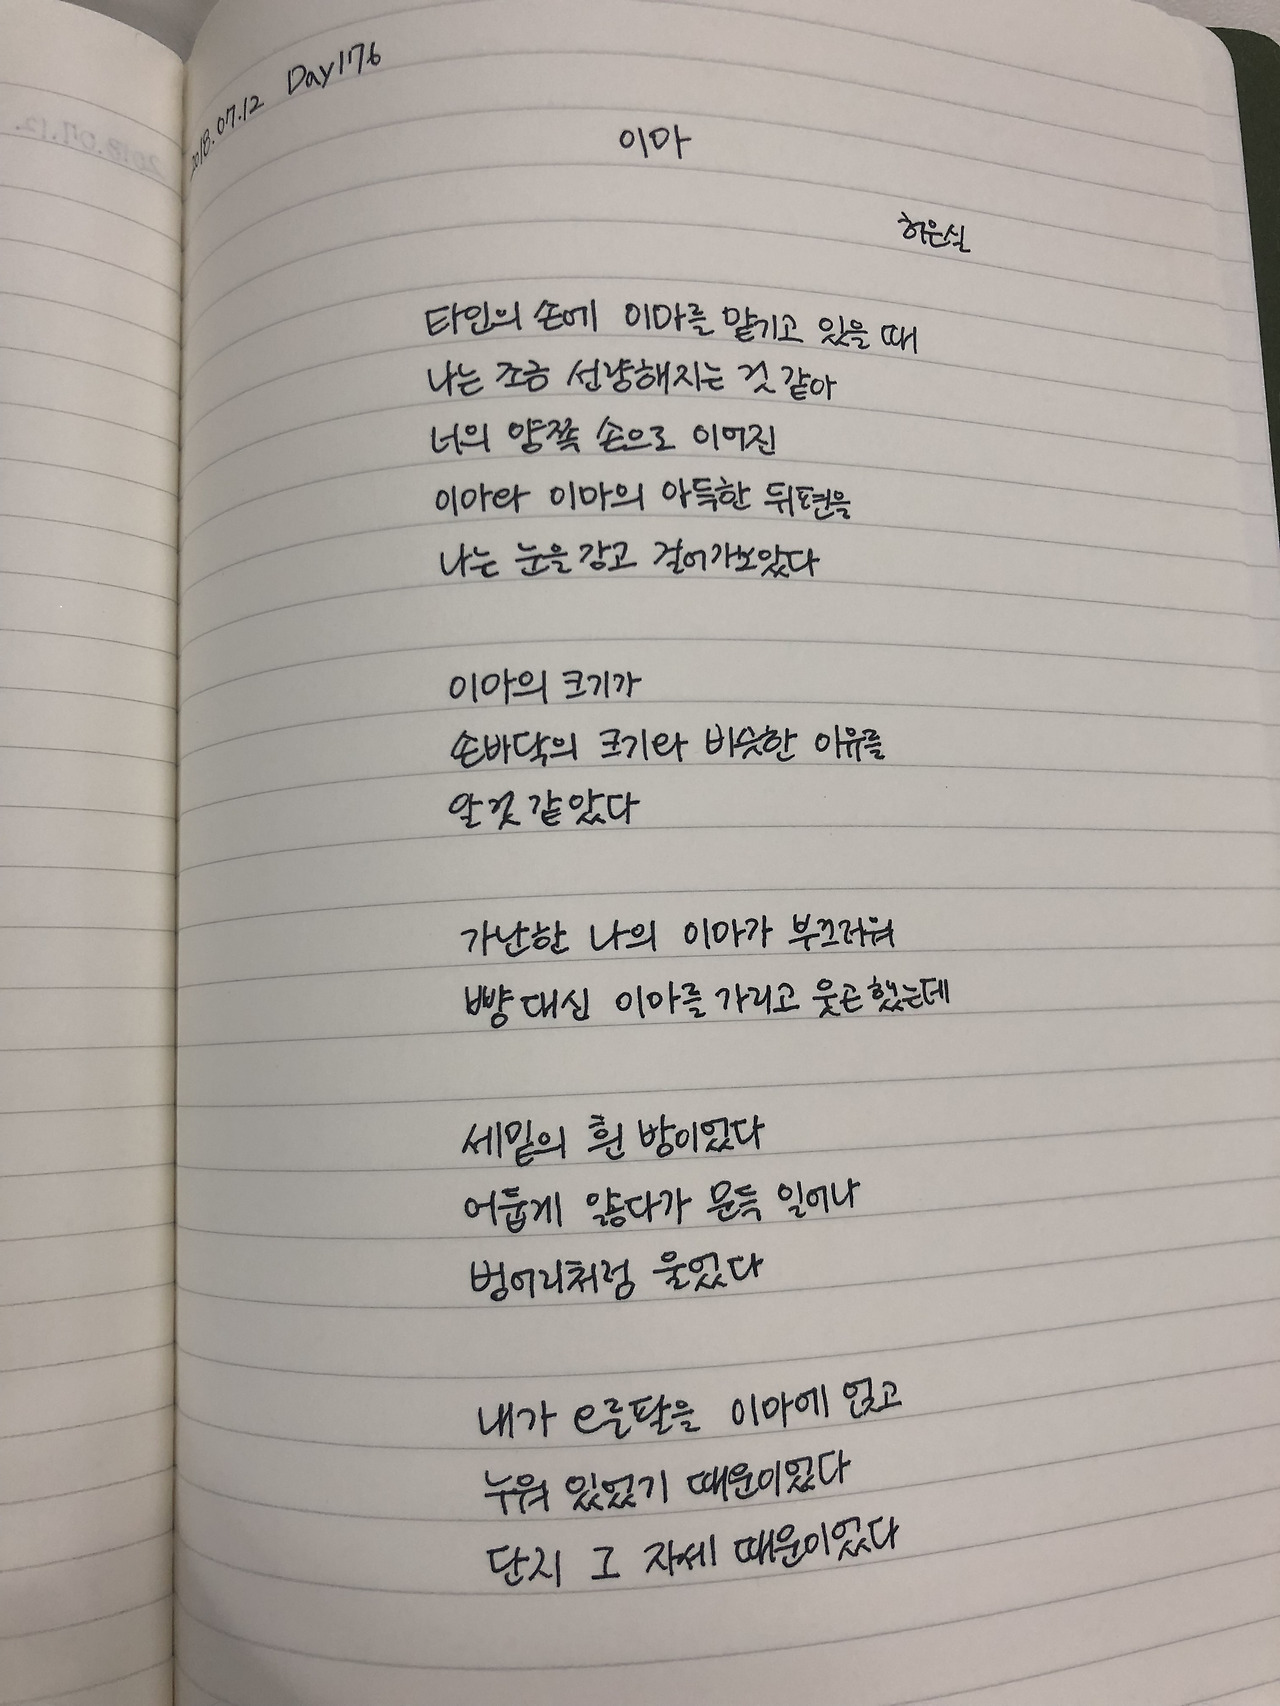 2018.07.12 Day176
이마
허은실
타인의 손에 이마를 맡기고 있을 때
나는 조금 선량해지는 것 같아
너의 양쪽 손으로 이어진
이마와 이마의 아득한 뒤편을
나는 눈을 감고 걸어가보았다
이마의 크기가
손바닥의 크기와 비슷한 이유를
알 것 같았다
가난한 나의 이마가 부끄러워
뺨 대신 이마를 가리고 웃곤 했는데
세밑의 흰 방이었다
어둡게 앓다가 문득 일어나
벙어리처럼 울었다
내가 오른팔을 이마에 얹고
누워 있었기 때문이었다
단지 그 자세 때문이었다
2018.07.12.